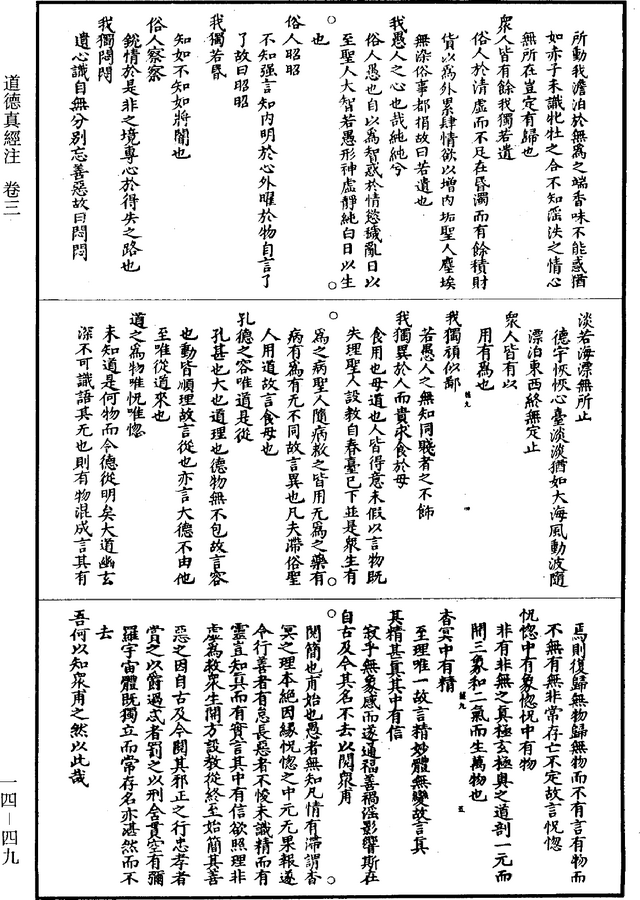 道德真經注 卷三
一四－四九
所動我澹泊於無為之端香味不能惑猶
如赤子未識牝牡之合不知淫泆之情心
無所在豈定有歸也
衆人皆有餘我獨若遺
俗人於清虛而不足在昏濁而有餘積財
貨以為外累肆情欲以增內垢聖人塵埃
無染俗事都捐故曰若遺也
我愚人之心也哉純純兮
俗人愚也自以為智惑於情慾瞋亂日以
至聖人大智若愚形神虛靜純白日以生
也
俗人昭昭
不知強言知內明於心外曜於物自言了
了故曰昭昭
我獨若昏
知如不知如將闇也
俗人察察
銳情於是非之境專心於得失之路也
我獨悶悶
遺心識自無分别忘善惡故曰悶悶
淡若海漂無所止
德宇恢恢心臺淡淡猶如大海風動波隨
漂泊東西終無定止
衆人皆有以
用有為也
我獨頑似鄙
若愚人之無知同賤者之不飾
我獨異於人而貴求食於母
食用也母道也人皆得意未假以言物既
失理聖人設教自春臺已下並是衆生有
為之病聖人隨病救之皆用无為之藥有
病有為有无不同故言異也凡夫滯俗聖
人用道故言食母也
孔德之容唯道是從
孔甚也大也道理也德物無不包故言容
也動皆順理故言從也亦言大德不由他
至唯從道來也
道之為物唯怳唯惚
未知道是何物而令德從明矣大道幽玄
深不可識語其无也則有物混成言其有
焉則復歸無物歸無物而不有言有物而
不無有無非常存亡不定故言怳惚
怳惚中有象惚怳中有物
非有非無之真極玄極奧之道剖一元而
開三象和二氣而生萬物也
杳冥中有精
至理唯一故言精妙體無變故言真
其精甚真其中有信
寂乎無象感而遂通福善禍淫影響斯在
自古及今其名不去以閱衆甫
閱簡也甫始也愚者無知凡情有滯謂杳
冥之理本絕因緣怳惚之中元无果報遂
令行善者有怠長惡者不悛未識精而有
靈豈知真而有實言其中有信欲照理非
虛為救衆生開方設教從終至始簡其善
惡之因自古及今閱其邪正之行忠孝者
賞之以爵過忒者罰之以刑含貫空有彌
羅宇宙體既獨立而常存名亦湛然而不
去
吾何以知衆甫之然以此哉